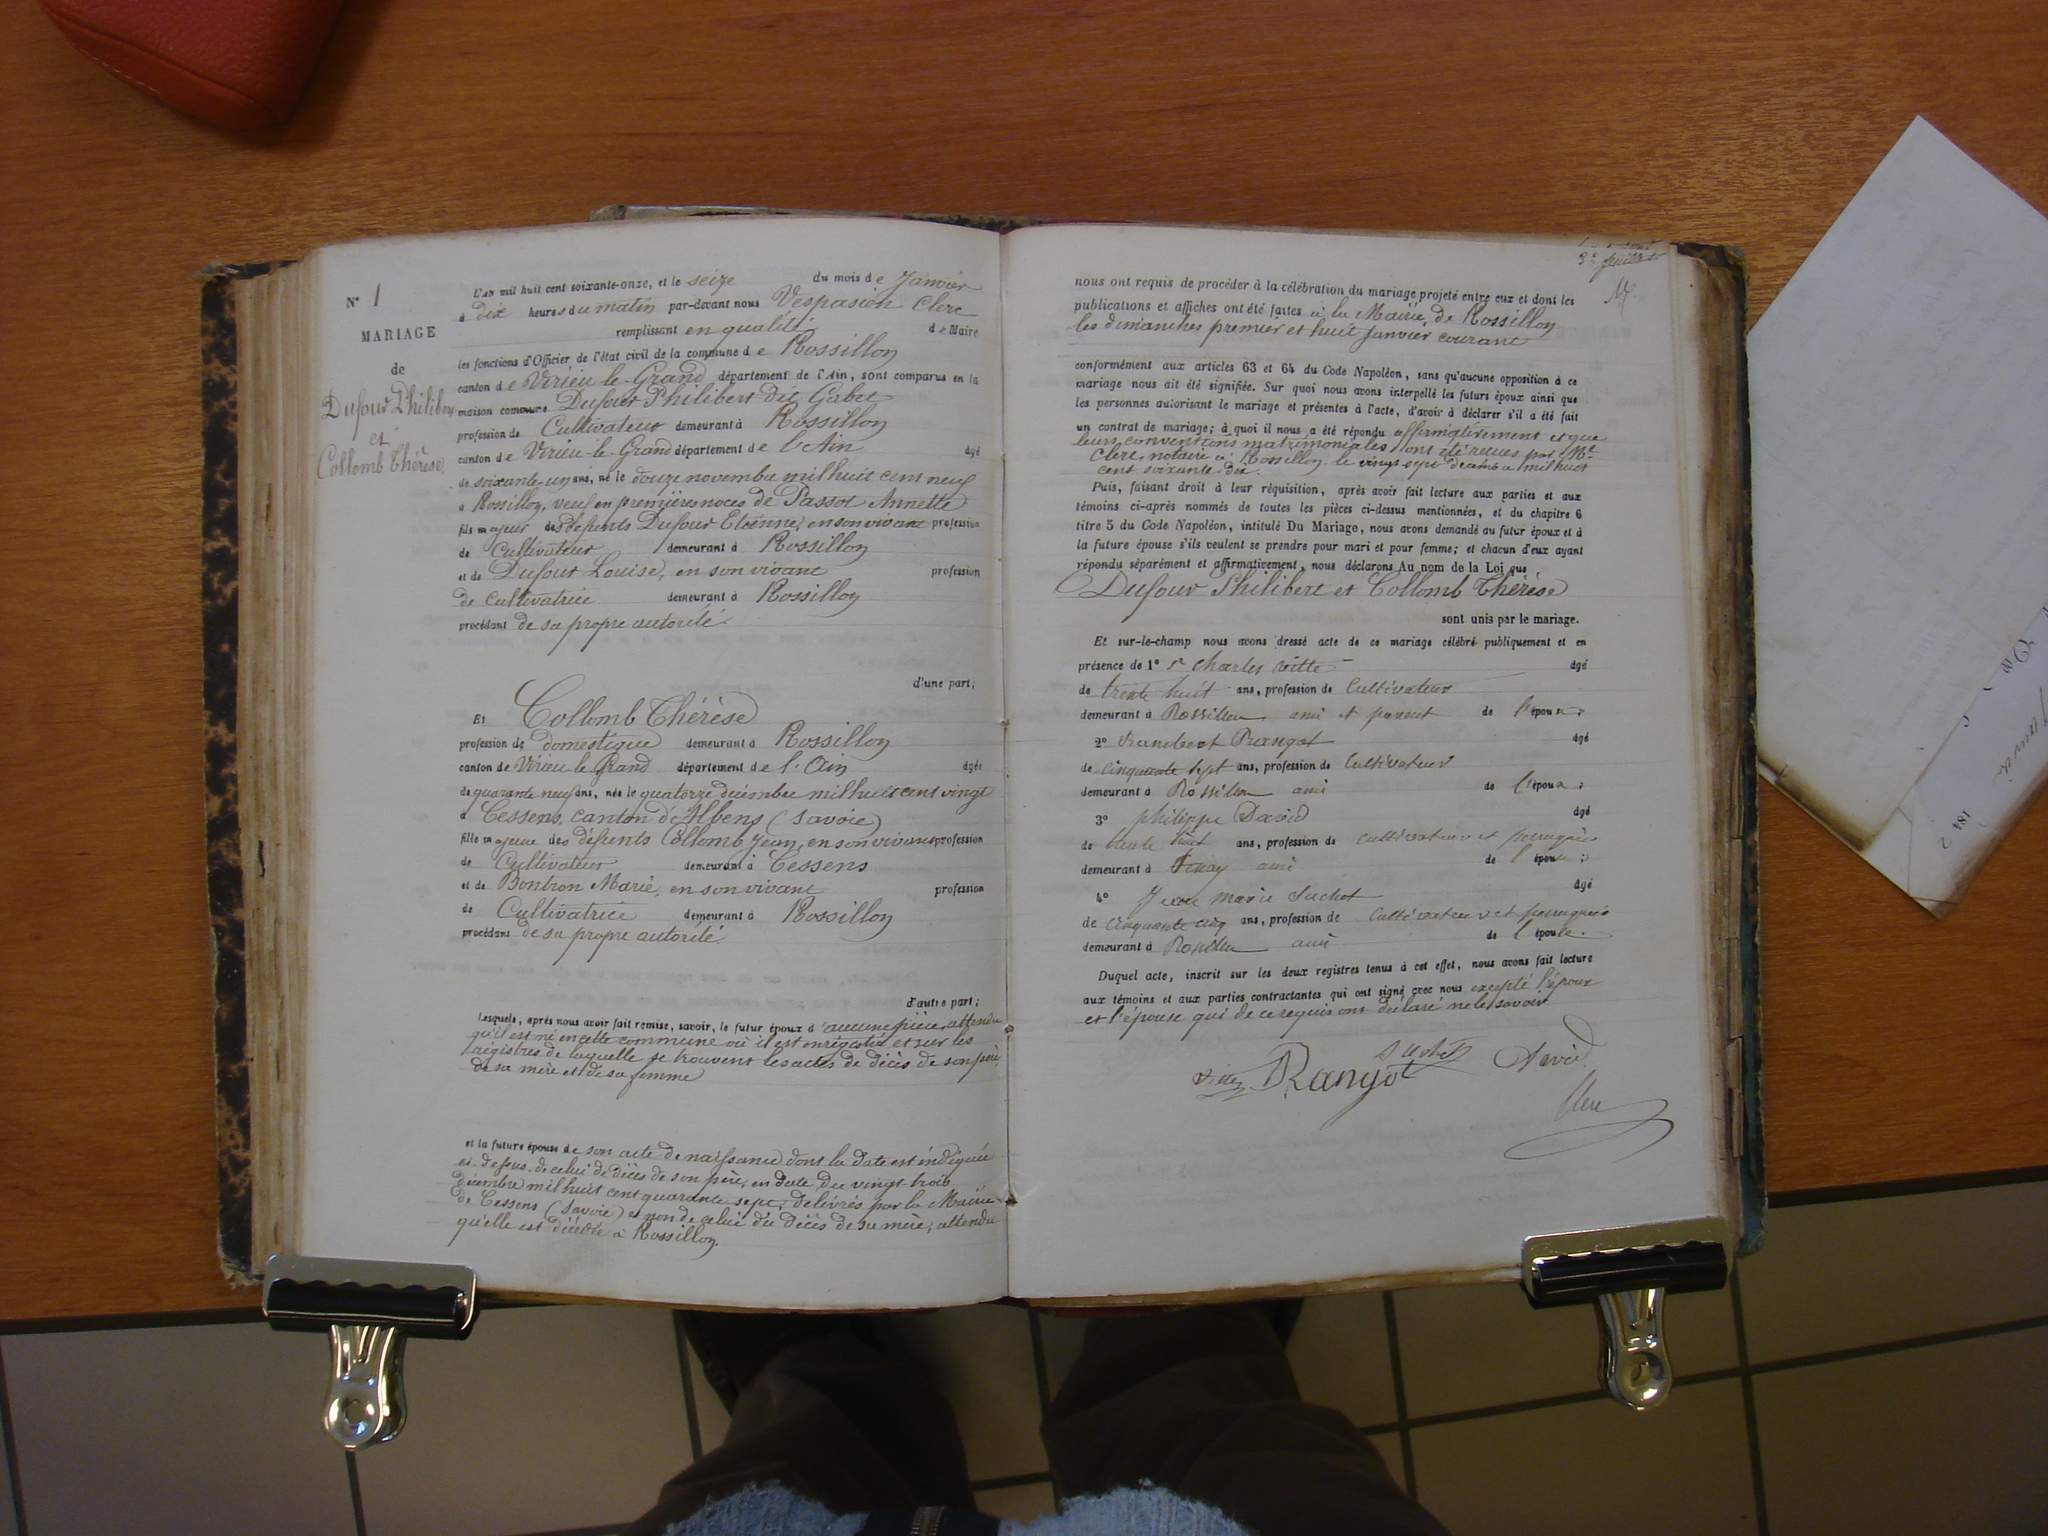 N° 1
MARIAGE
de
Dufour Philibert
et
Collomb Thérèse
L'an mil huit cent soixante-onze, et le seize du mois de Janvier
à dix heures du matin par-devant nous Vespasien Clerc
remplissant en qualité de Maire
les fonctions d'Officier de l'état civil de la commune de Rossillon
canton de Virieu-le-Grand département de l'Ain, sont comparus en la
maison commune Dufour Philibert dit Gabet
profession de Cultivateur demeurant à Rossillon
canton de Virieu-le-Grand département de l'Ain âgé
de soixante-un ans, né le douze novembre mil huit cent neuf
à Rossillon, veuf en premières noces de Passot Annette
fils majeur des défunts Dufour Etienne, en son vivant profession
de Cultivateur demeurant à Rossillon
et de Dufour Louise, en son vivant profession
de Cultivatrice demeurant à Rossillon
procédant de sa propre autorité
d'une part;
Et Collomb Thérèse
profession de domestique demeurant à Rossillon
canton de Virieu-le-Grand département de l'Ain âgée
de quarante neuf ans, née le quatorze décembre mil huit cent vingt
à Cessens, canton d'Albens (Savoie)
fille majeure des défunts Collomb Jean, en son vivant profession
de Cultivateur demeurant à Cessens
et de Bontron Marie, en son vivant profession
de Cultivatrice demeurant à Rossillon
procédant de sa propre autorité
d'autre part;
Lesquels, après nous avoir fait remise, savoir, le futur époux d'aucune pièce, attendu
qu'il est né en cette commune où il est enregistré et sur les
régistres de laquelle se trouvent les actes de décès de son père,
de sa mère et de sa femme
et la future épouse de son acte de naissance dont la date est indiquée
ci-dessus, de celui de décès de son père, en date du vingt-trois
décembre mil huit cent quarante sept, délivrés par la Mairie
de Cessens (Savoie) et non de celui du décès de sa mère, attendu
qu'elle est décédée à Rossillon.
nous ont requis de procéder à la célébration du mariage projeté entre eux et dont les
publications et affiches ont été faites à la Mairie de Rossillon
les dimanches premier et huit Janvier courant
conformément aux articles 63 et 64 du Code Napoléon, sans qu'aucune opposition à ce
mariage nous ait été signifiée. Sur quoi nous avons interpellé les futurs époux ainsi que
les personnes autorisant le mariage et présentes à l'acte, d'avoir à déclarer s'il a été fait
un contrat de mariage; à quoi il nous a été répondu affirmativement et que
leurs conventions matrimoniales ont été reçues par Me
Clerc, notaire à Rossillon le vingt-sept décembre mil huit
cent soixante dix.
Puis, faisant droit à leur réquisition, après avoir fait lecture aux parties et aux
témoins ci-après nommés de toutes les pièces ci-dessus mentionnées, et du chapitre 6
titre 5 du Code Napoléon, intitulé Du Mariage, nous avons demandé au futur époux et à
la future épouse s'ils veulent se prendre pour mari et pour femme; et chacun d'eux ayant
répondu séparément et affirmativement, nous déclarons Au nom de la Loi que
Dufour Philibert et Collomb Thérèse
sont unis par le mariage.
Et sur-le-champ nous avons dressé acte de ce mariage célébré publiquement et en
présence de 1° sr Charles Vitte âgé
de trente huit ans, profession de Cultivateur
demeurant à Rossillon ami et parent de l'époux;
2° Rambert Rangot âgé
de cinquante sept ans, profession de Cultivateur
demeurant à Rossillon ami de l'époux;
3° philippe David âgé
de trente huit ans, profession de cultivateur et
demeurant à Tenay ami de l'épouse;
4° Jean Marie Suchet âgé
de cinquante cinq ans, profession de Cultivateur et
demeurant à Rossillon ami de l'épouse.
Duquel acte, inscrit sur les deux registres tenus à cet effet, nous avons fait lecture
aux témoins et aux parties contractantes qui ont signé avec nous excepté l'époux
et l'épouse qui de ce requis ont déclaré ne le savoir
Vitte Rangot Suchet David
Clerc
184 2